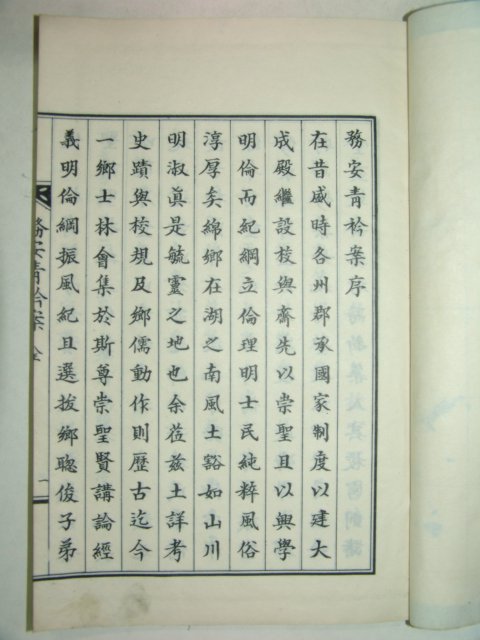 務安青衿案序
在昔盛時各州郡承國家制度以建大
成殿繼設校與齋先以崇聖且以興學
明倫而紀綱立倫理明士民純粹風俗
淳厚矣綿鄉在湖之南風土豁如山川
明淑眞是毓靈之地也余莅茲土詳考
史蹟與校規及鄉儒動作則歷古迄今
一鄉士林會集於斯尊崇聖賢講論經
義明倫綱振風紀且選拔鄉聰俊子弟
務安青衿案 全
一